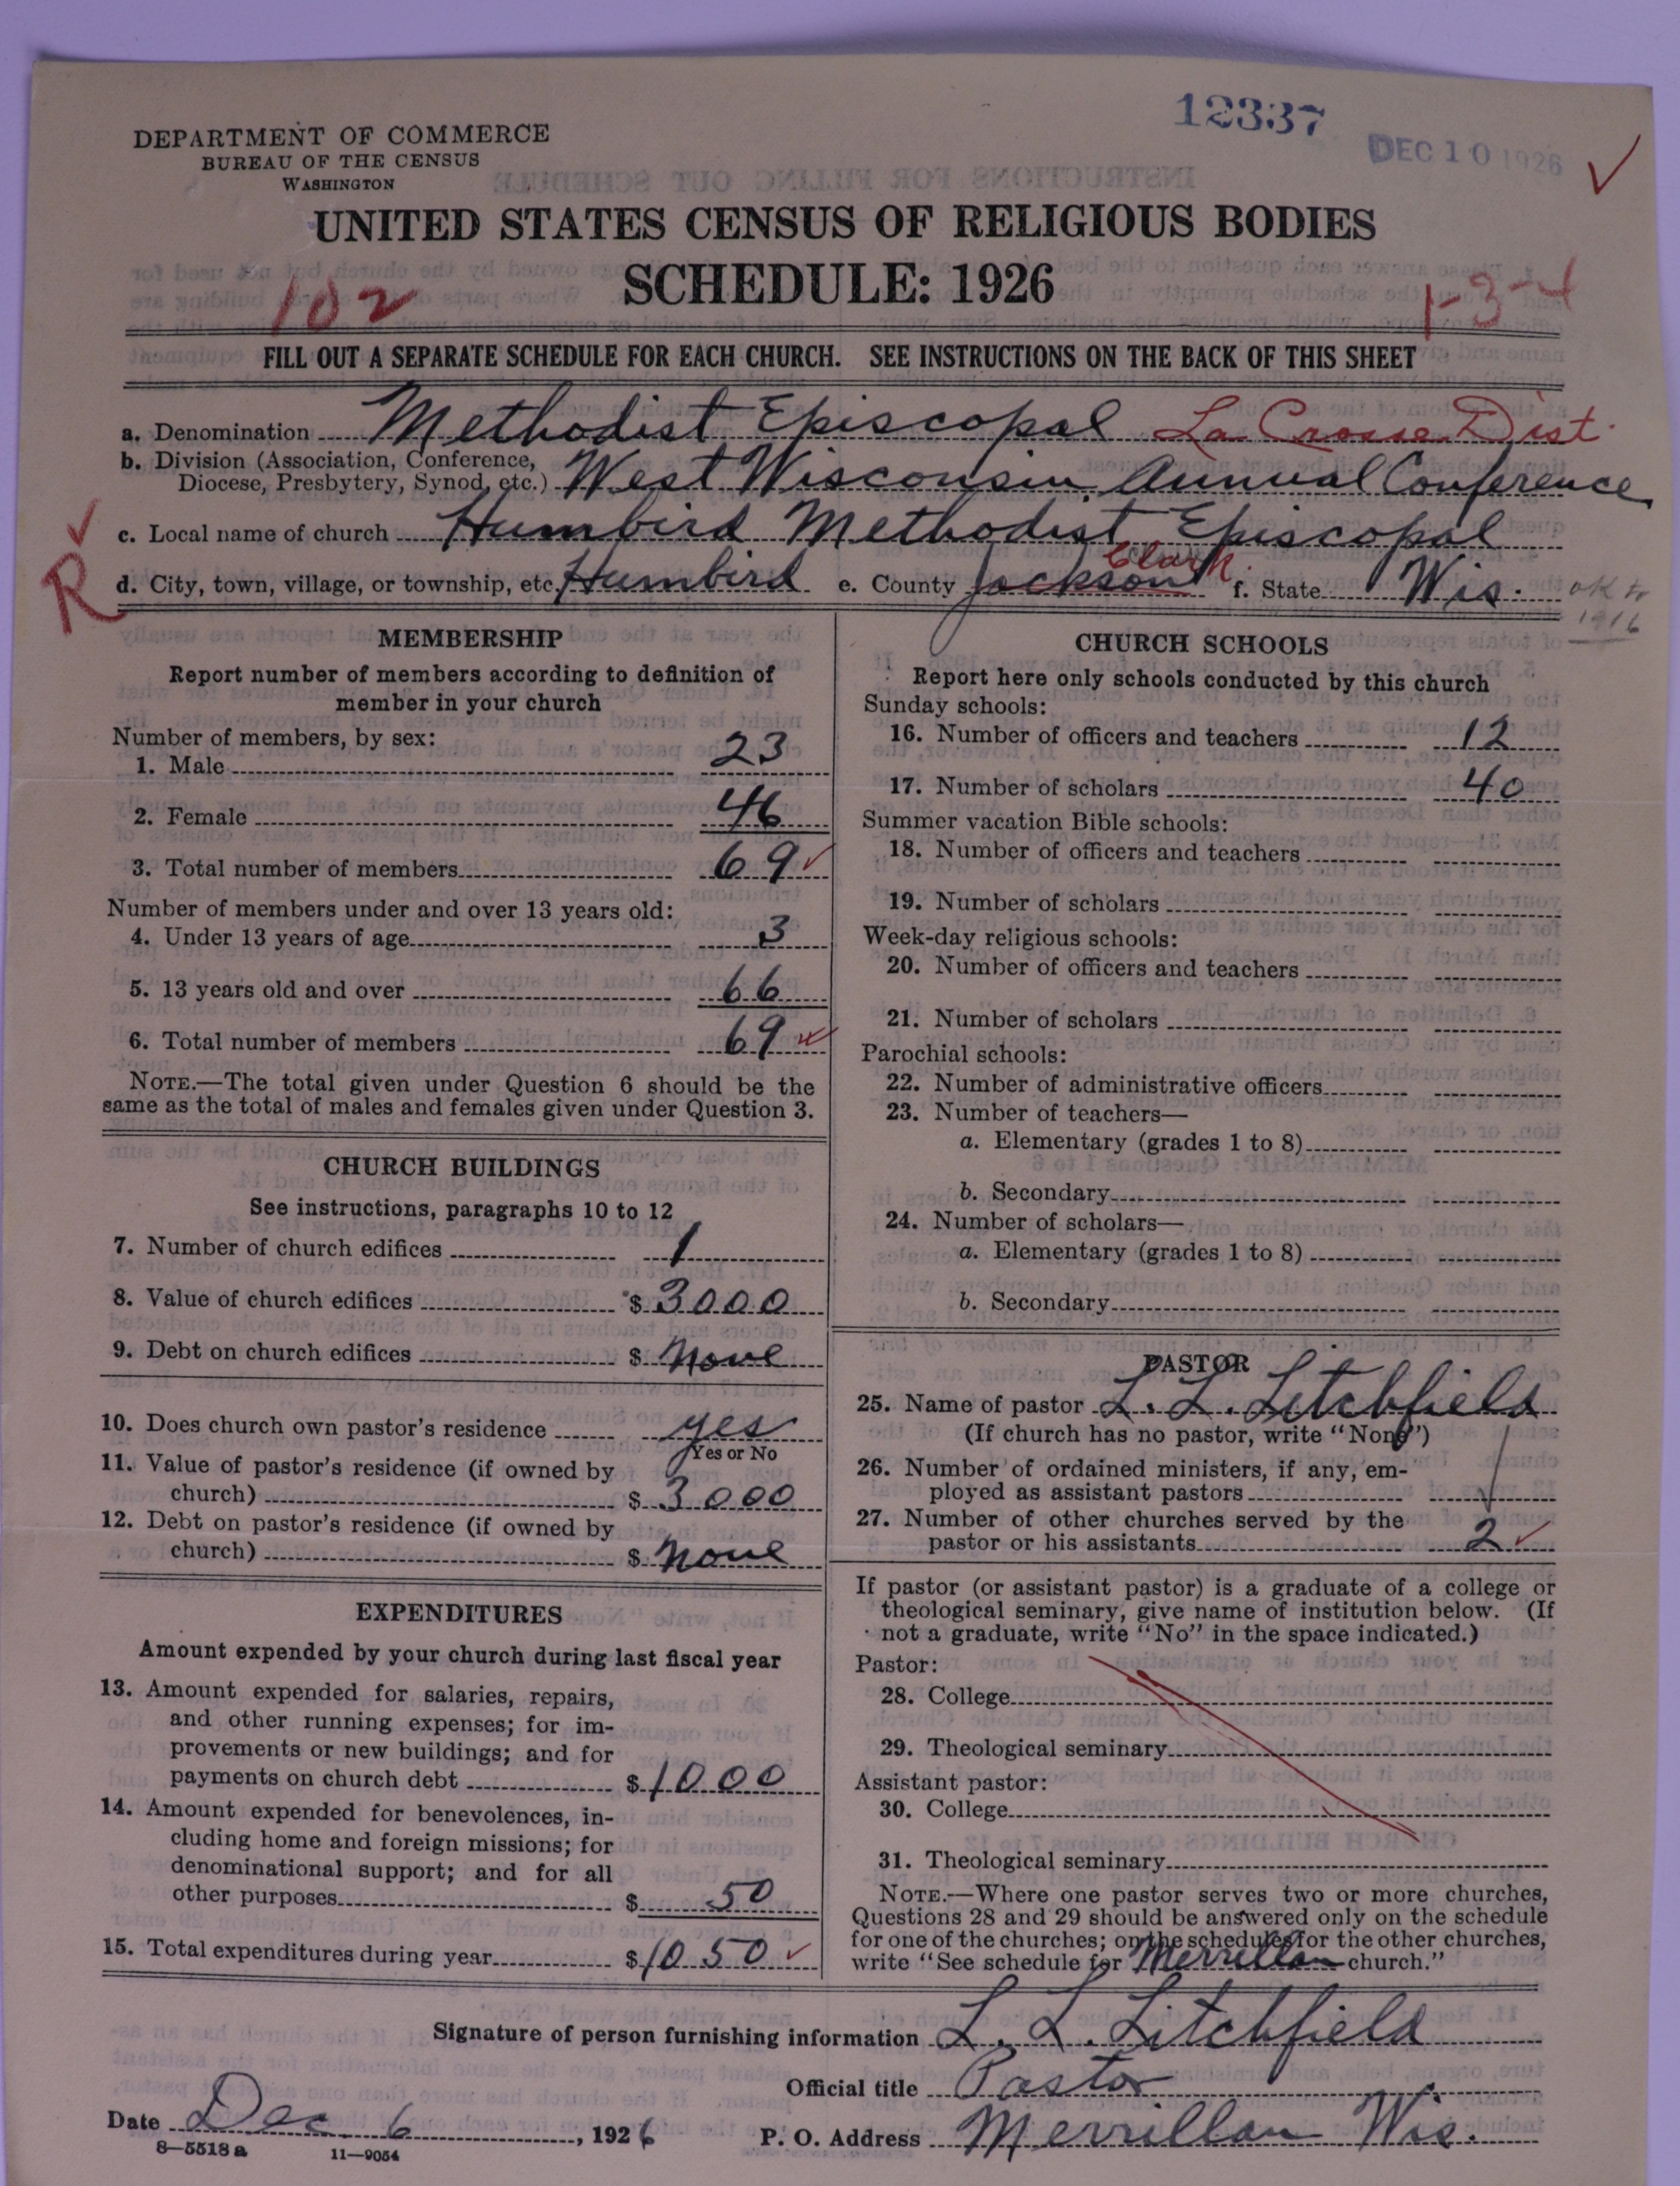 12337
DEC 10 1926
DEPARTMENT OF COMMERCE
BUREAU OF THE CENSUS
WASHINGTON
UNITED STATES CENSUS OF RELIGIOUS BODIES
SCHEDULE: 1926
102
1-3-4
FILL OUT A SEPARATE SCHEDULE FOR EACH CHURCH. SEE INSTRUCTIONS ON THE BACK OF THIS SHEET
a. Denomination Methodist Episcopal La Crosse Dist.
b. Division (Association, Conference, Diocese, Presbytery, Synod, etc.) West Wisconsin Annual Conference
c. Local name of church Humbird Methodist Episcopal
R
d. City, town, village, or township, etc. Humbird e. County Jackson Clark. f. State Wis.
OK to 1916
MEMBERSHIP
Report number of members according to definition of
member in your church
Number of members, by sex:
1. Male 23
2. Female 46
3. Total number of members 69
Number of members under and over 13 years old:
4. Under 13 years of age 3
5. 13 years old and over 66
6. Total number of members 69
NOTE.—The total given under Question 6 should be the
same as the total of males and females given under Question 3.
CHURCH BUILDINGS
See instructions, paragraphs 10 to 12
7. Number of church edifices 1
8. Value of church edifices $ 3000
9. Debt on church edifices $ None
10. Does church own pastor's residence yes
Yes or No
11. Value of pastor's residence (if owned by
church) $ 3000
12. Debt on pastor's residence (if owned by
church) $ None
EXPENDITURES
Amount expended by your church during last fiscal year
13. Amount expended for salaries, repairs,
and other running expenses; for im-
provements or new buildings; and for
payments on church debt $ 1000
14. Amount expended for benevolences, in-
cluding home and foreign missions; for
denominational support; and for all
other purposes $ 50
15. Total expenditures during year $ 1050
CHURCH SCHOOLS
Report here only schools conducted by this church
Sunday schools:
16. Number of officers and teachers 12
17. Number of scholars 40
Summer vacation Bible schools:
18. Number of officers and teachers
19. Number of scholars
Week-day religious schools:
20. Number of officers and teachers
21. Number of scholars
Parochial schools:
22. Number of administrative officers
23. Number of teachers—
a. Elementary (grades 1 to 8)
b. Secondary
24. Number of scholars—
a. Elementary (grades 1 to 8)
b. Secondary
PASTOR
25. Name of pastor L. L. Litchfield
(If church has no pastor, write "None")
26. Number of ordained ministers, if any, em-
ployed as assistant pastors
27. Number of other churches served by the
pastor or his assistants 2
If pastor (or assistant pastor) is a graduate of a college or
theological seminary, give name of institution below. (If
not a graduate, write "No" in the space indicated.)
Pastor:
28. College
29. Theological seminary
Assistant pastor:
30. College
31. Theological seminary
NOTE.—Where one pastor serves two or more churches,
Questions 28 and 29 should be answered only on the schedule
for one of the churches; on the schedules for the other churches,
write "See schedule for Merrillan church."
Signature of person furnishing information L. L. Litchfield
Official title Pastor
Date Dec 6, 1926 P. O. Address Merrillan Wis.
8—5518 a 11—9054